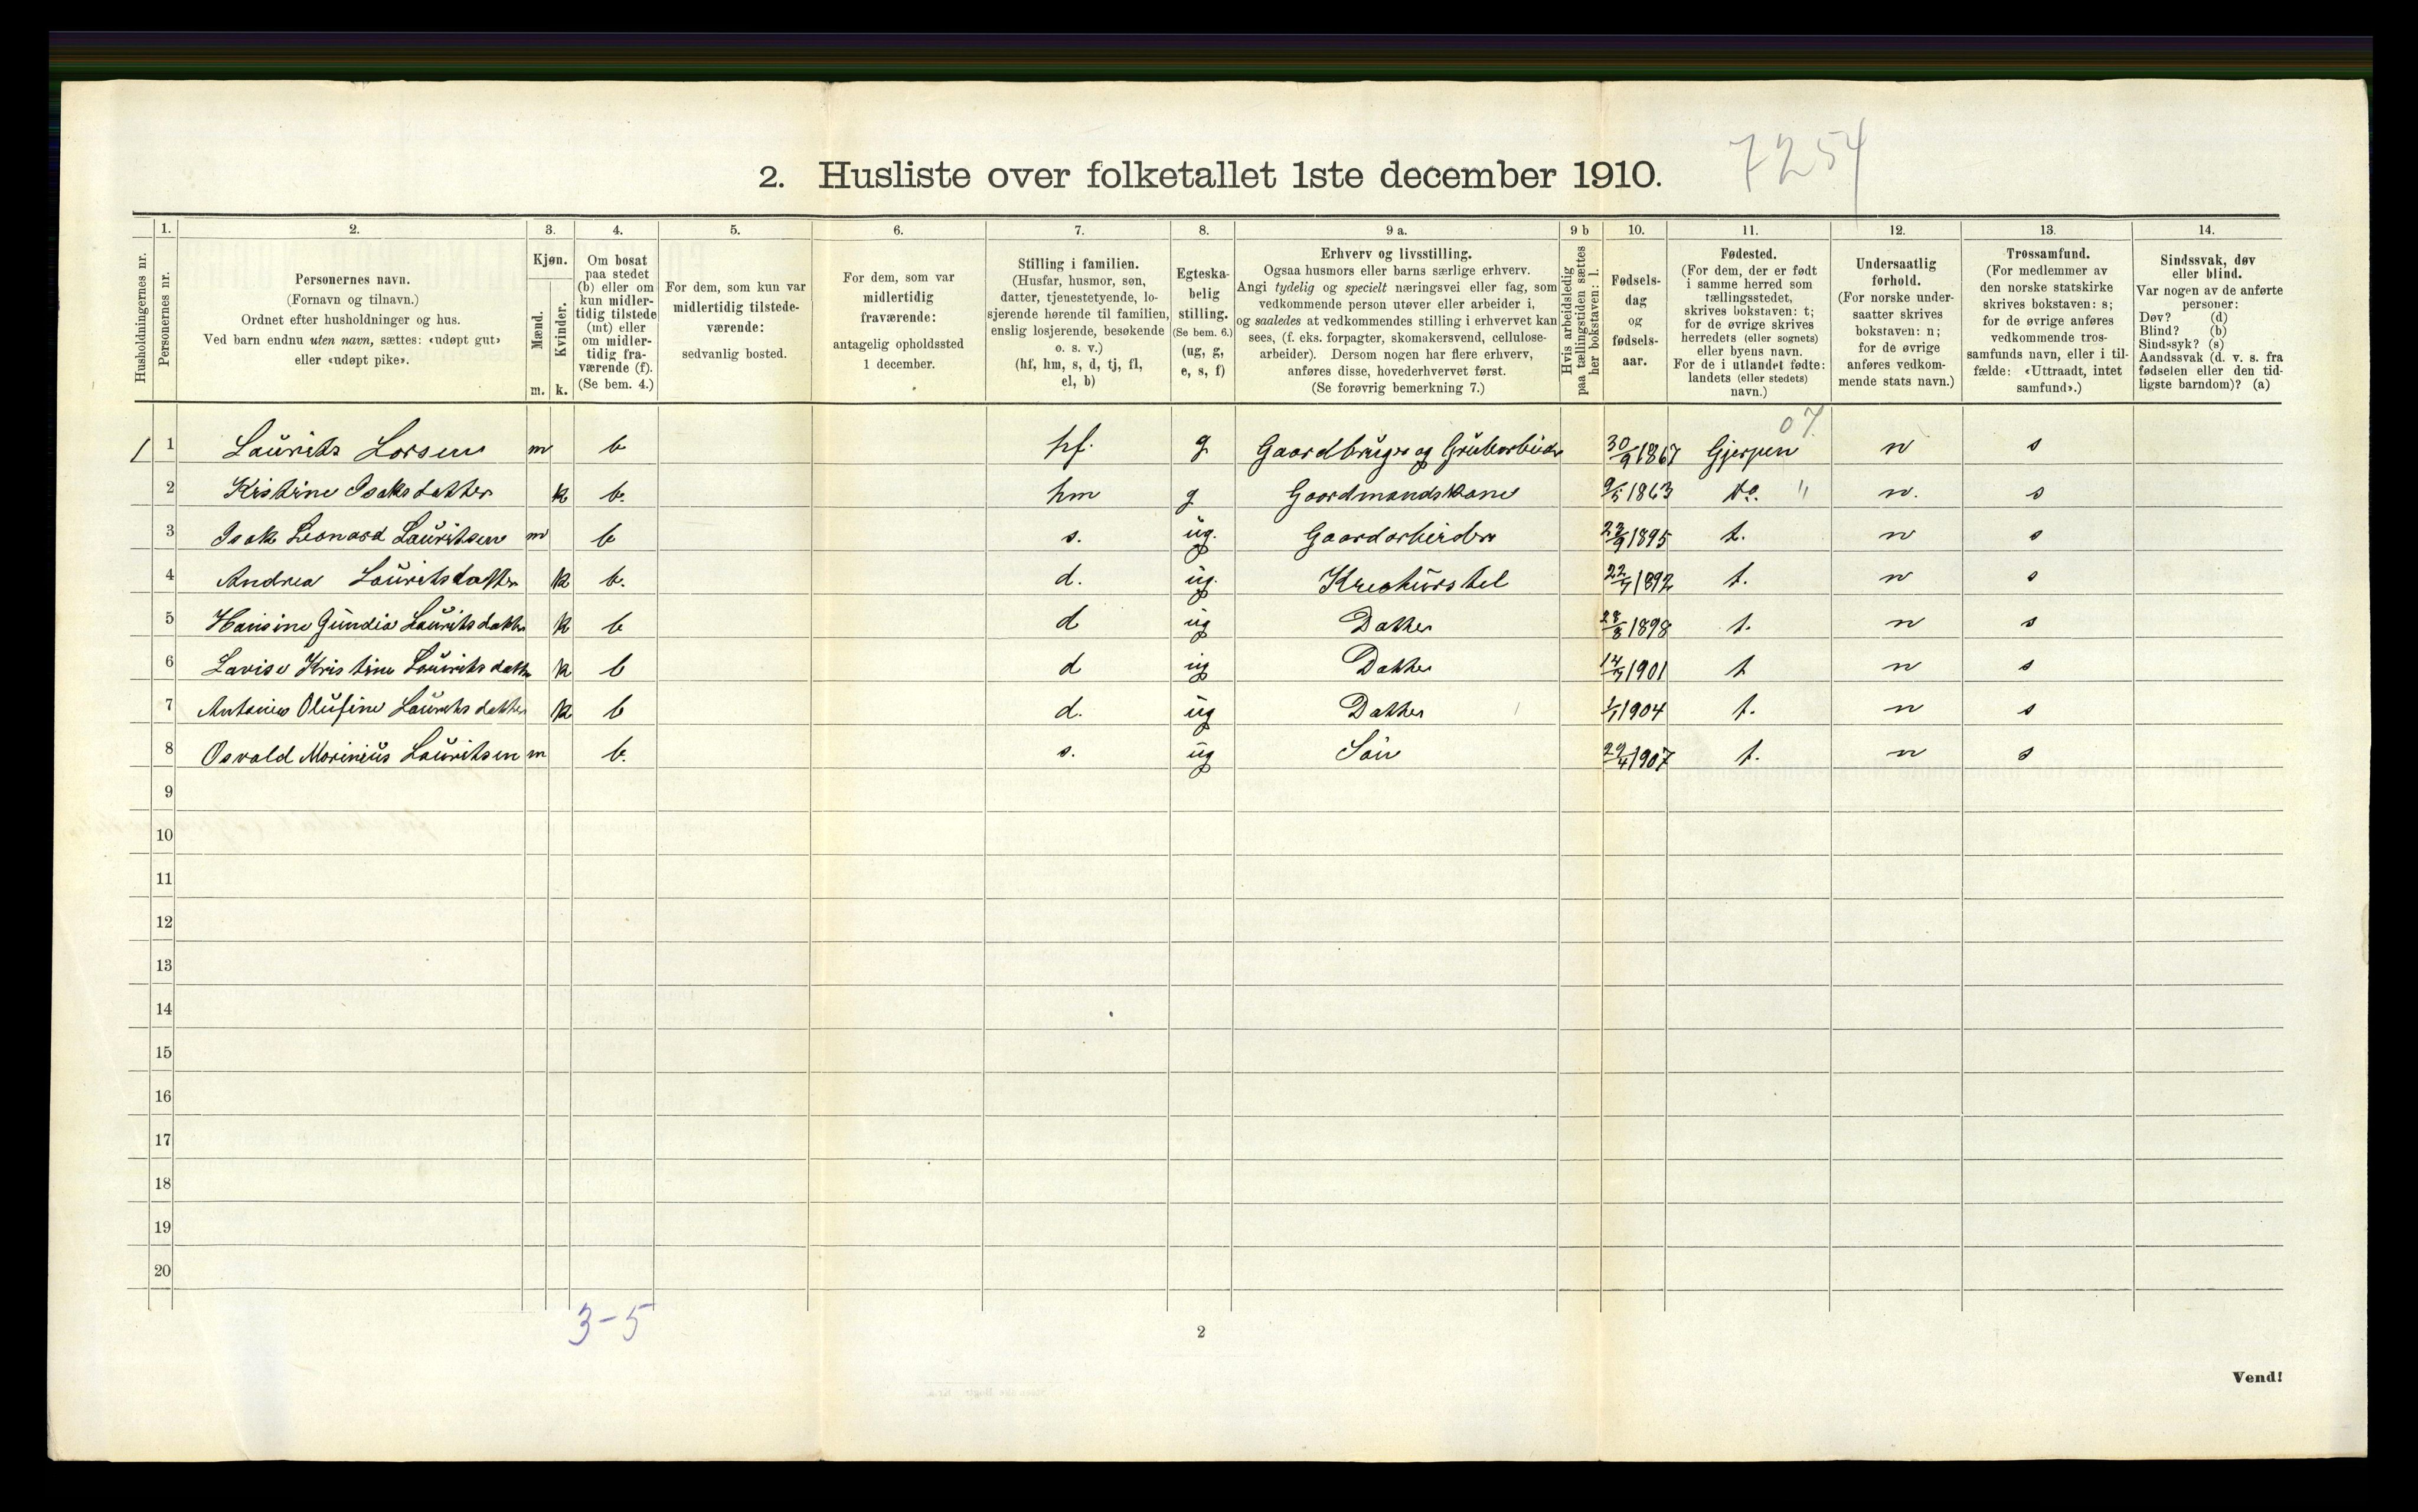 7254
2. Husliste over folketallet 1ste december 1910.
Husholdningernes nr.
1. Personernes nr.
2. Personernes navn.
(Fornavn og tilnavn.)
Ordnet efter husholdninger og hus.
Ved barn endnu uten navn, sættes: «udøpt gut»
eller «udøpt pike».
3. Kjøn.
Mænd. m.
Kvinder. k.
4. Om bosat
paa stedet
(b) eller om
kun midler-
tidig tilstede
(mt) eller
om midler-
tidig fra-
værende (f).
(Se bem. 4.)
5. For dem, som kun var
midlertidig tilstede-
værende:
sedvanlig bosted.
6. For dem, som var
midlertidig
fraværende:
antagelig opholdssted
1 december.
7. Stilling i familien.
(Husfar, husmor, søn,
datter, tjenestetyende, lo-
sjerende hørende til familien,
enslig losjerende, besøkende
o. s. v.)
(hf, hm, s, d, tj, fl,
el, b)
8. Egteska-
belig
stilling.
(Se bem. 6.)
(ug, g,
e, s, f)
9 a. Erhverv og livsstilling.
Ogsaa husmors eller barns særlige erhverv.
Angi tydelig og specielt næringsvei eller fag, som
vedkommende person utøver eller arbeider i,
og saaledes at vedkommendes stilling i erhvervet kan
sees, (f. eks. forpagter, skomakersvend, cellulose-
arbeider). Dersom nogen har flere erhverv,
anføres disse, hovederhvervet først.
(Se forøvrig bemerkning 7.)
9 b Hvis arbeidsledig
paa tællingstiden sættes
her bokstaven: l.
10. Fødsels-
dag
og
fødsels-
aar.
11. Fødested.
(For dem, der er født
i samme herred som
tællingsstedet,
skrives bokstaven: t;
for de øvrige skrives
herredets (eller sognets)
eller byens navn.
For de i utlandet fødte:
landets (eller stedets)
navn.)
12. Undersaatlig
forhold.
(For norske under-
saatter skrives
bokstaven: n;
for de øvrige
anføres vedkom-
mende stats navn.)
13. Trossamfund.
(For medlemmer av
den norske statskirke
skrives bokstaven: s;
for de øvrige anføres
vedkommende tros-
samfunds navn, eller i til-
fælde: «Uttraadt, intet
samfund».)
14. Sindssvak, døv
eller blind.
Var nogen av de anførte
personer:
Døv? (d)
Blind? (b)
Sindssyk? (s)
Aandssvak (d. v. s. fra
fødselen eller den tid-
ligste barndom)? (a)
07
1 1 Laurits Larsen m b hf. g Gaardbruger og Grubarbeider 30/9 1867 Gjerpen n s
2 Kistine Isaksdatter k b. hm g Gaardmandskone 9/5 1863 do. " n. s
3 Isak Leonard Lauritsen m b s. ug. Gaardarbeider 1895 t. n s
4 Andrea Lauritsdatter k b. d. ug. 1892 t. n s
5 Hansine Gundia Lauritsdatter k b d ug Datter 28/8 1898 t. n s
6 Lavise Kristine Lauritsdatter k b d ug Datter 1901 t n s
7 Antonie Olufine Lauritsdatter k b d. ug Datter 1904 t. n s
8 Osvald Marinius Lauritsen m b. s. ug Søn 29/4 1907 t. n s
9
10
11
12
13
14
15
16
17
18
19
20
3-5
2
Vend!